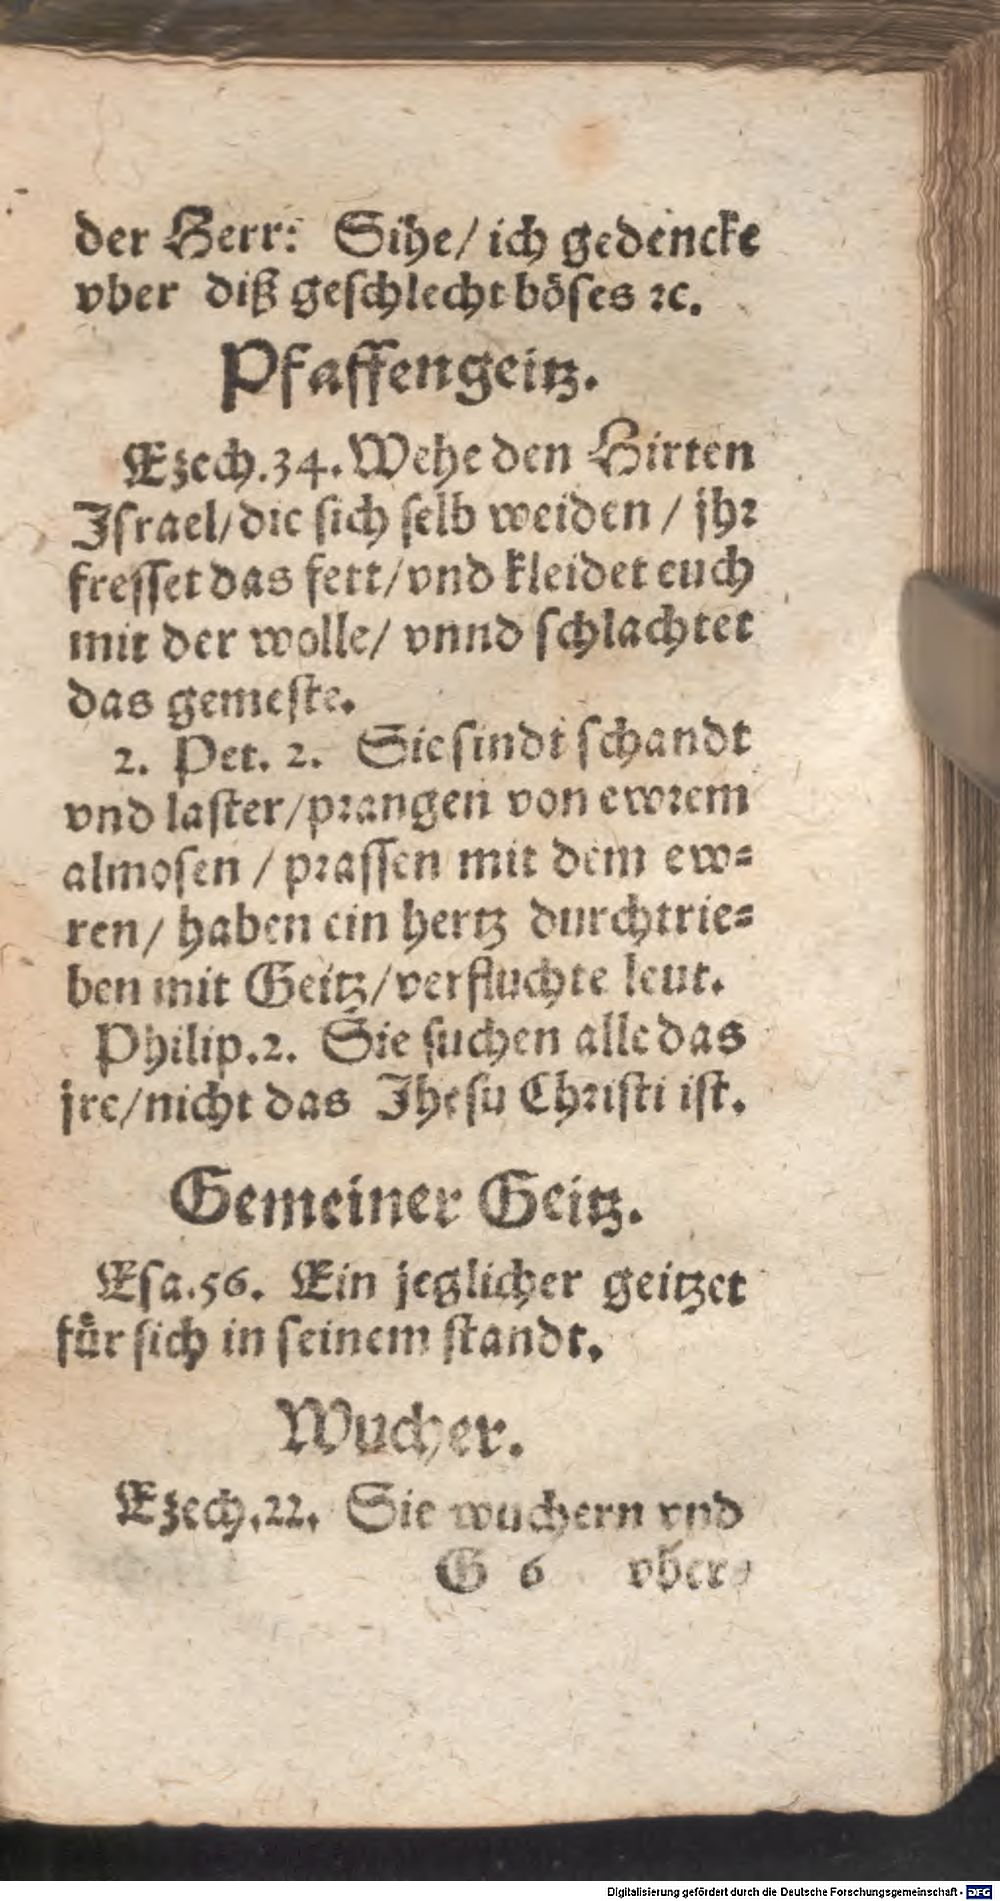 der Herr: Sihe/ ich gedencke
vber diß geschlecht böses ꝛc.
Pfaffengeitz.
Ezech.34. Wehe den Hirten
Israel/die sich selb weiden / jhr
fresset das fett/vnd kleidet euch
mit der wolle/ vnnd schlachtet
das gemeste.
2. Pet. 2. Sie sindt schandt
vnd laster/prangen von ewrem
almosen / prassen mit dem ew⸗
ren/ haben ein hertz durchtrie⸗
ben mit Geitz/verfluchte leut.
Philip.2. Sie suchen alle das
jre/nicht das Jhesu Christi ist.
Gemeiner Geitz.
Esa.56. Ein jeglicher geitzet
fuͤr sich in seinem standt.
Wucher.
Ezech.22. Sie wuchern vnd
G 6 vber⸗
Digitalisierung gefördert durch die Deutsche Forschungsgemeinschaft - DFG